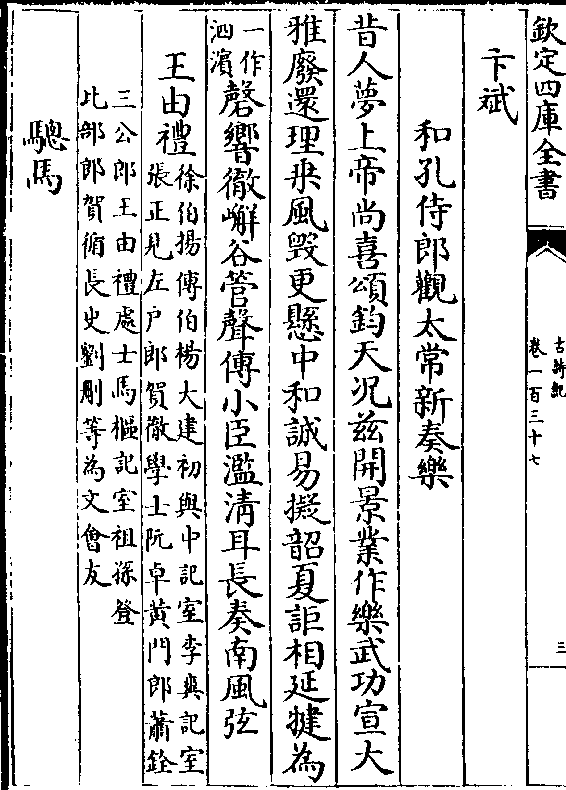 欽定四庫全書
古詩紀
卷一百三十七
三
卞斌
和孔侍郎觀太常新奏樂
昔人夢上帝尚喜頌鈞天况兹開景業作樂武功宣大
雅廢還理乗風毀更懸中和誠易擬韶夏詎相延揵為
一作
泗濱
磬響徹嶰谷管聲傳小臣濫清耳長奏南風弦
王由禮
徐伯揚傳伯楊大建初與中記室李爽記室
張正見左户郎賀徹學士阮卓黄門郎蕭銓
三公郎王由禮處士馬樞記室祖孫登
比部郎賀循長史劉刪等為文會友
驄馬